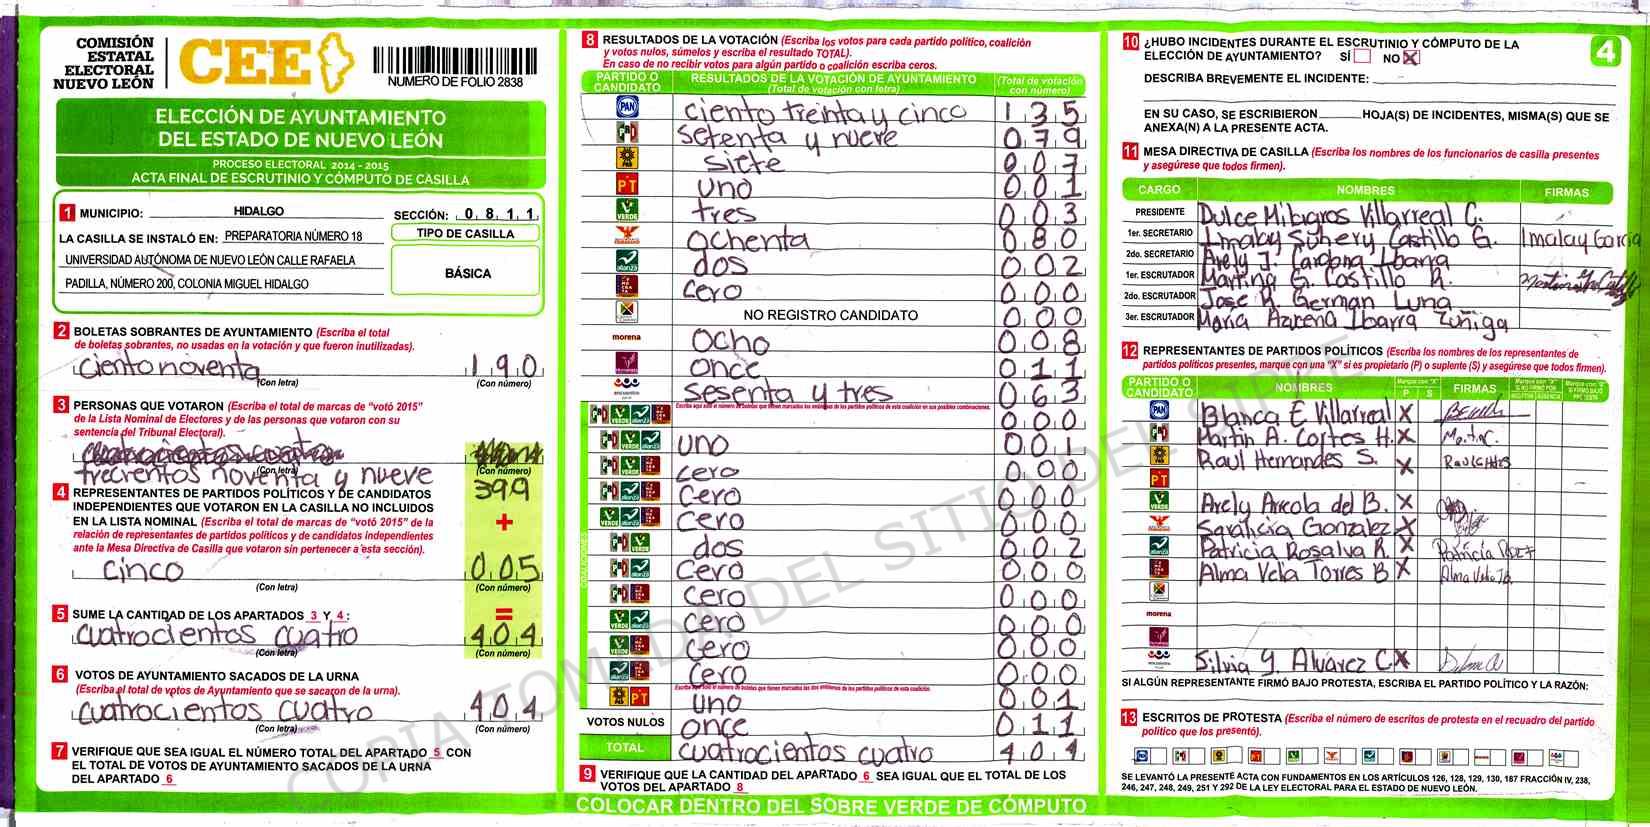 COMISIÓN
ESTATAL
ELECTORAL
NUEVO LEÓN
CEE
NUMERO DE FOLIO 2838
ELECCIÓN DE AYUNTAMIENTO
DEL ESTADO DE NUEVO LEÓN
PROCESO ELECTORAL 2014 - 2015
ACTA FINAL DE ESCRUTINIO Y CÓMPUTO DE CASILLA
1 MUNICIPIO: HIDALGO SECCIÓN: 0 8 1 1
LA CASILLA SE INSTALÓ EN: PREPARATORIA NÚMERO 18
UNIVERSIDAD AUTÓNOMA DE NUEVO LEÓN CALLE RAFAELA
PADILLA, NÚMERO 200, COLONIA MIGUEL HIDALGO
TIPO DE CASILLA
BÁSICA
2 BOLETAS SOBRANTES DE AYUNTAMIENTO (Escriba el total
de boletas sobrantes, no usadas en la votación y que fueron inutilizadas).
ciento noventa 1 9 0
(Con letra) (Con número)
3 PERSONAS QUE VOTARON (Escriba el total de marcas de "votó 2015"
de la Lista Nominal de Electores y de las personas que votaron con su
sentencia del Tribunal Electoral).
(Con letra) (Con número)
trecientos noventa y nueve 399
4 REPRESENTANTES DE PARTIDOS POLÍTICOS Y DE CANDIDATOS
INDEPENDIENTES QUE VOTARON EN LA CASILLA NO INCLUIDOS
EN LA LISTA NOMINAL (Escriba el total de marcas de "votó 2015" de la
relación de representantes de partidos políticos y de candidatos independientes
ante la Mesa Directiva de Casilla que votaron sin pertenecer a esta sección).
+
cinco 0 0 5
(Con letra) (Con número)
=
5 SUME LA CANTIDAD DE LOS APARTADOS 3 Y 4:
cuatrocientos cuatro 4 0 4
(Con letra) (Con número)
6 VOTOS DE AYUNTAMIENTO SACADOS DE LA URNA
(Escriba el total de votos de Ayuntamiento que se sacaron de la urna).
cuatrocientos cuatro 4 0 4
(Con letra) (Con número)
7 VERIFIQUE QUE SEA IGUAL EL NÚMERO TOTAL DEL APARTADO 5 CON
EL TOTAL DE VOTOS DE AYUNTAMIENTO SACADOS DE LA URNA
DEL APARTADO 6
8 RESULTADOS DE LA VOTACIÓN (Escriba los votos para cada partido político, coalición
y votos nulos, súmelos y escriba el resultado TOTAL).
En caso de no recibir votos para algún partido o coalición escriba ceros.
PARTIDO O CANDIDATO RESULTADOS DE LA VOTACIÓN DE AYUNTAMIENTO (Total de votación con letra) (Total de votación con número)
PAN ciento treinta y cinco 1 3 5
setenta y nueve 0 7 9
siete 0 0 7
PT uno 0 0 1
VERDE tres 0 0 3
ochenta 0 8 0
alianza dos 0 0 2
cero 0 0 0
NO REGISTRO CANDIDATO 0 0 0
morena ocho 0 0 8
once 0 1 1
encuentro sesenta y tres 0 6 3
COALICIONES
VERDE alianza 0 0 0
VERDE alianza uno 0 0 1
VERDE cero 0 0 0
alianza cero 0 0 0
VERDE alianza cero 0 0 0
VERDE dos 0 0 2
alianza cero 0 0 0
cero 0 0 0
VERDE alianza cero 0 0 0
VERDE cero 0 0 0
alianza cero 0 0 0
PT uno 0 0 1
VOTOS NULOS once 0 1 1
TOTAL cuatrocientos cuatro 4 0 4
9 VERIFIQUE QUE LA CANTIDAD DEL APARTADO 6 SEA IGUAL QUE EL TOTAL DE LOS
VOTOS DEL APARTADO 8
10 ¿HUBO INCIDENTES DURANTE EL ESCRUTINIO Y CÓMPUTO DE LA
ELECCIÓN DE AYUNTAMIENTO? SÍ NO X
4
DESCRIBA BREVEMENTE EL INCIDENTE:
EN SU CASO, SE ESCRIBIERON HOJA(S) DE INCIDENTES, MISMA(S) QUE SE
ANEXA(N) A LA PRESENTE ACTA.
11 MESA DIRECTIVA DE CASILLA (Escriba los nombres de los funcionarios de casilla presentes
y asegúrese que todos firmen).
CARGO NOMBRES FIRMAS
PRESIDENTE Dulce Milagros Villarreal C.
1er. SECRETARIO Imalay Suhery Castillo G. Imalay Garcia
2do. SECRETARIO Arely J. Cardona Ibarra
1er. ESCRUTADOR Martina G. Castillo R.
2do. ESCRUTADOR Jose R. German Luna
3er. ESCRUTADOR Maria Azucena Ibarra Zuñiga
12 REPRESENTANTES DE PARTIDOS POLÍTICOS (Escriba los nombres de los representantes de
partidos políticos presentes, marque con una "X" si es propietario (P) o suplente (S) y asegúrese que todos firmen).
PARTIDO O CANDIDATO NOMBRES Marque con "X" P S FIRMAS
PAN Blanca E Villarreal X
Martin A. Cortes H. X
Raul Hernandes S. X
PT
VERDE Arely Arcola del B. X
Gonzalez X
alianza Patricia Rosalva R. X
Alma Vela Torres B X
morena
encuentro Silvia Y. Alvarez C. X
SI ALGÚN REPRESENTANTE FIRMÓ BAJO PROTESTA, ESCRIBA EL PARTIDO POLÍTICO Y LA RAZÓN:
13 ESCRITOS DE PROTESTA (Escriba el número de escritos de protesta en el recuadro del partido
político que los presentó).
SE LEVANTÓ LA PRESENTE ACTA CON FUNDAMENTOS EN LOS ARTÍCULOS 126, 128, 129, 130, 187 FRACCIÓN IV, 238,
246, 247, 248, 249, 251 Y 292 DE LA LEY ELECTORAL PARA EL ESTADO DE NUEVO LEÓN.
COLOCAR DENTRO DEL SOBRE VERDE DE CÓMPUTO
COPIA TOMADA DEL SITIO DEL SIPRE